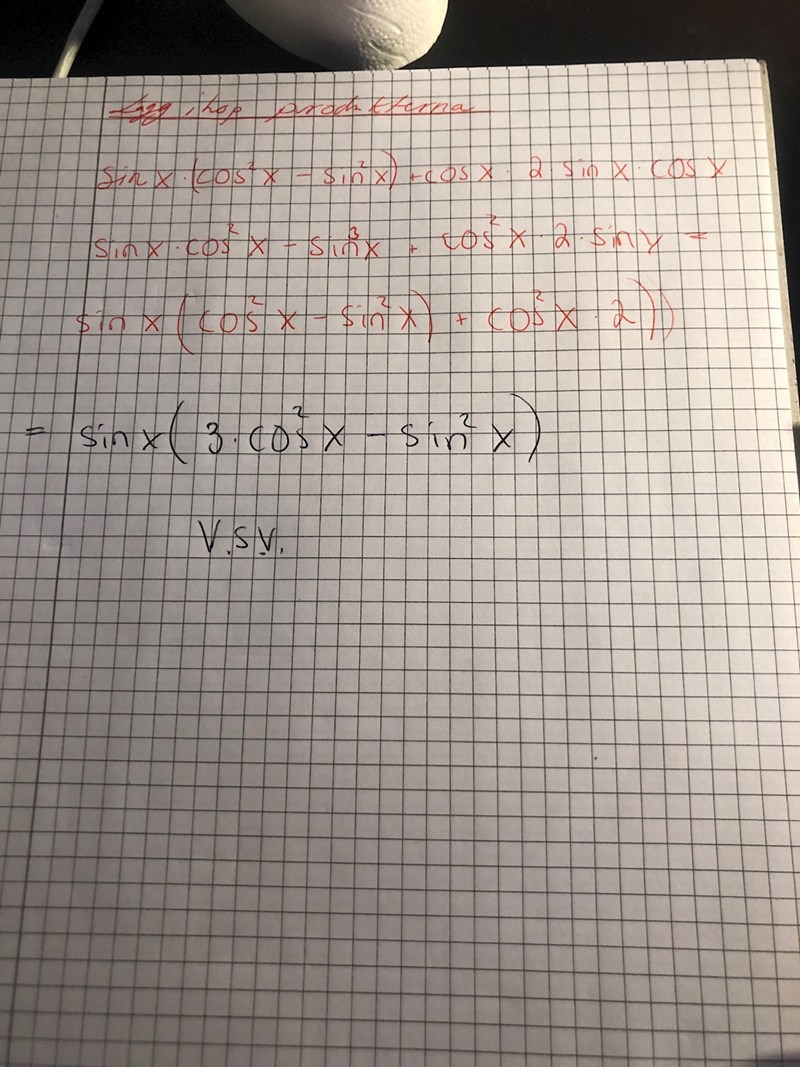 Lägg ihop produkterna
sin x · (cos²x - sin²x) + cos x · 2 sin x · cos x
sin x · cos²x - sin³x + cos²x · 2 · sin y =
sin x (cos²x - sin²x) + cos²x · 2))
= sin x (3 · cos²x - sin²x)
V.S.V.